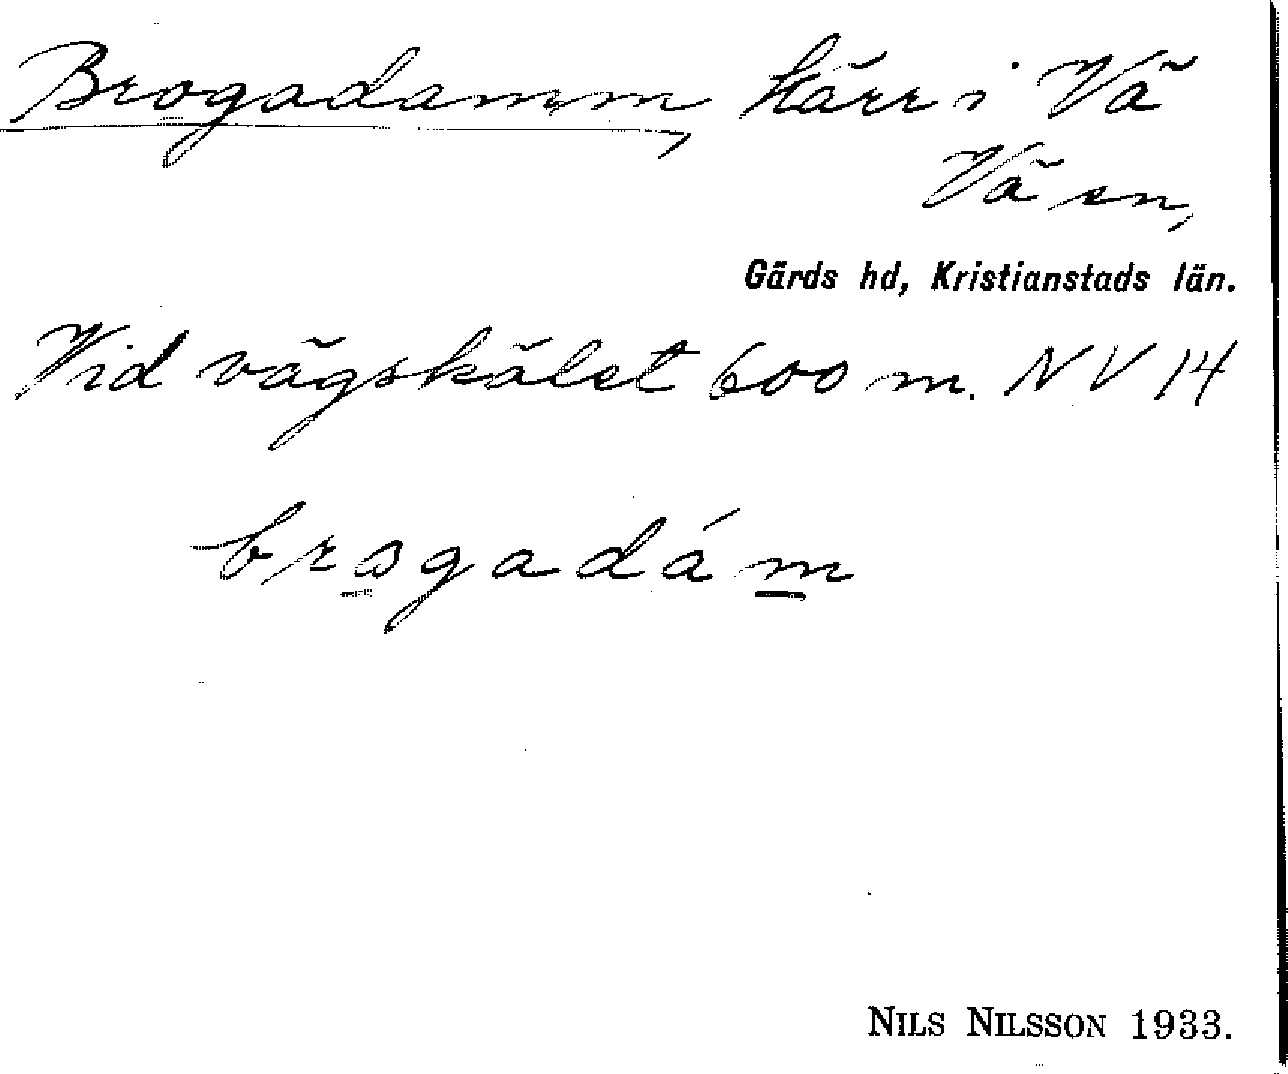 Brogadamm, kärr i Vä
Vä sn,
Gärds hd, Kristianstads län.
Vid vägskälet 600 m. NV 14
brogadám
NILS NILSSON 1933.